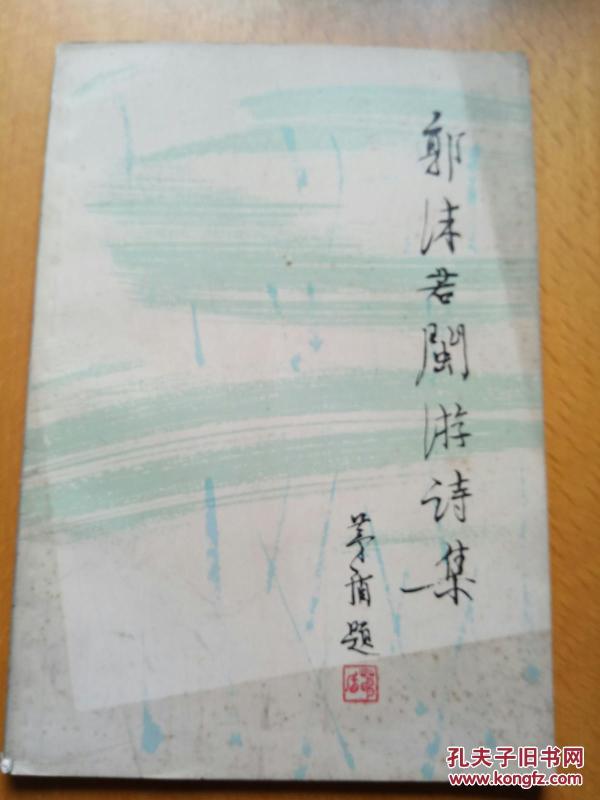 郭沫若閩游诗集
茅盾题
孔夫子旧书网
www.kongfz.com